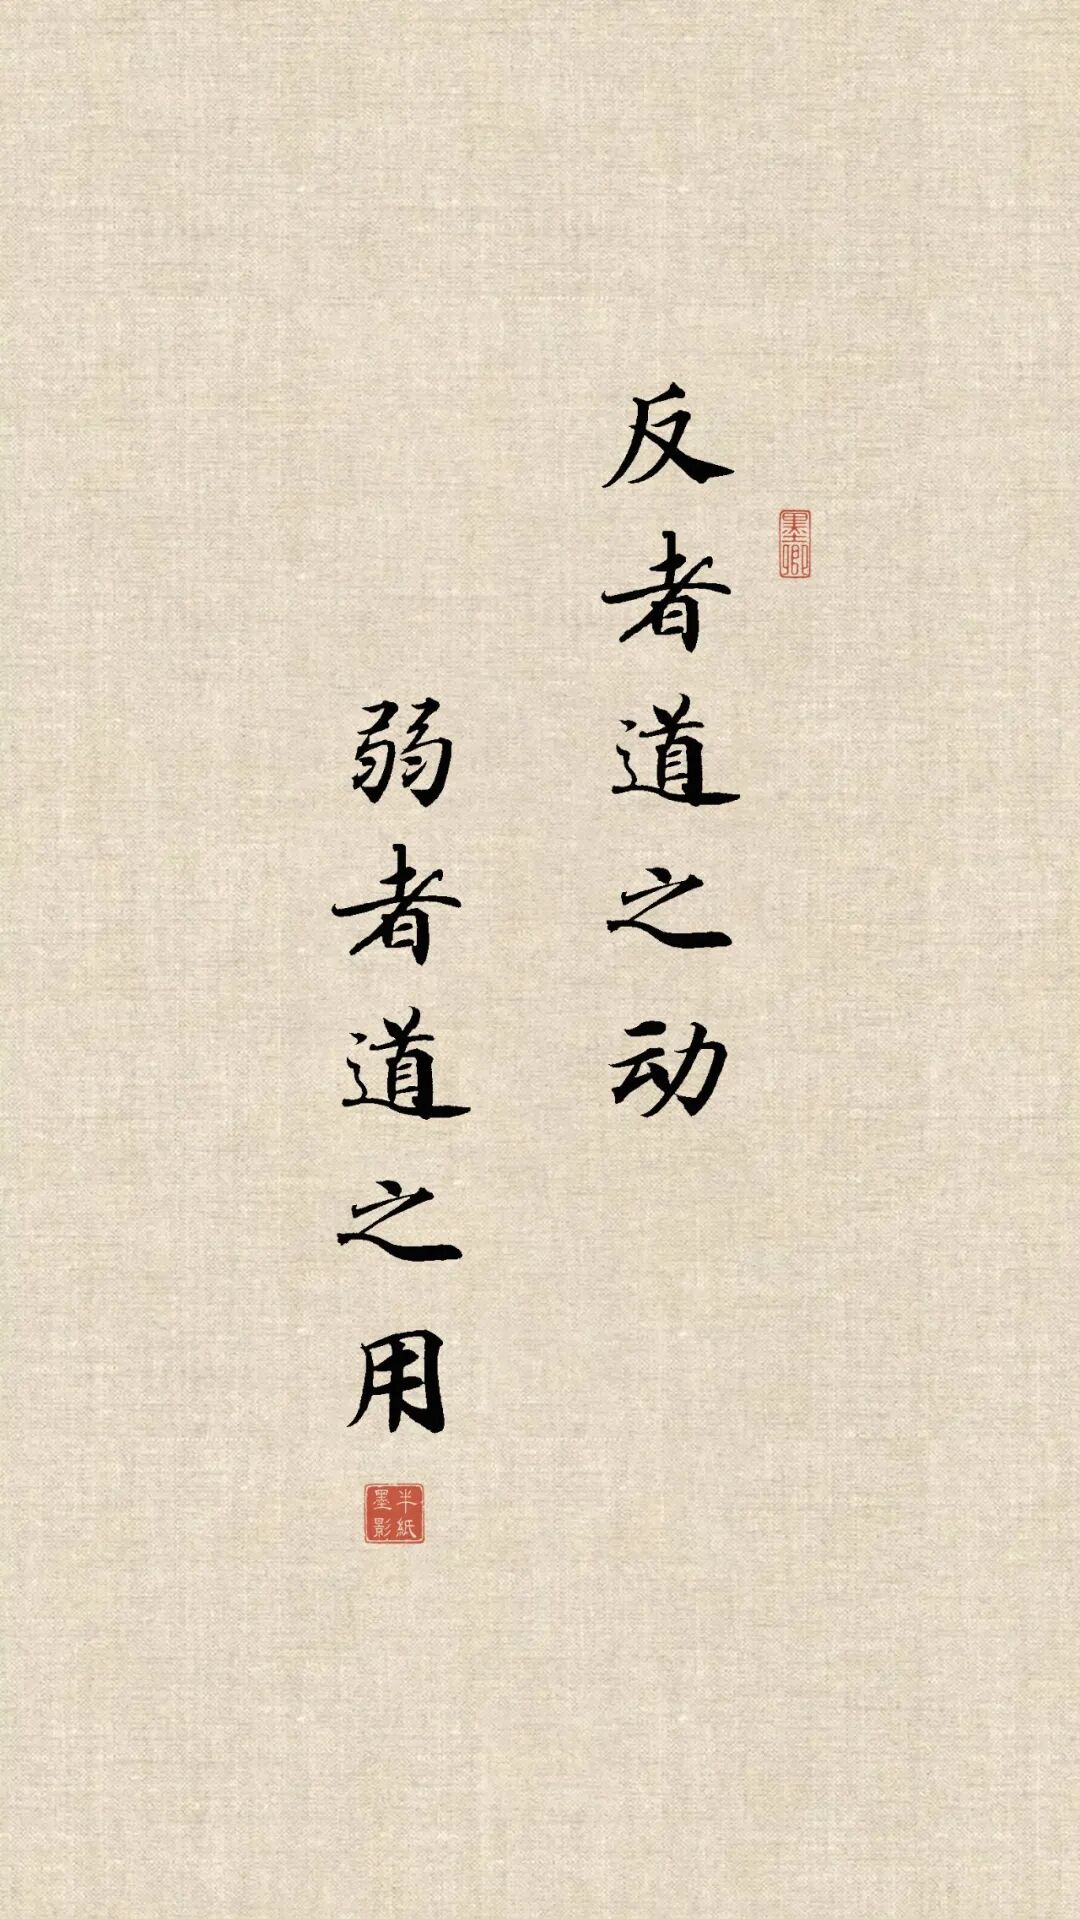 反者道之动
墨卿
弱者道之用
半紙墨影